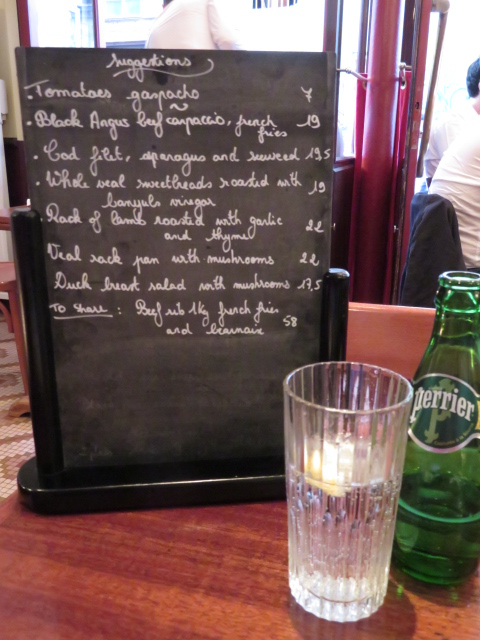 Suggestions
. Tomatoes gaspacho 7
. Black Angus beef carpaccio, french 19
fries
. Cod filet, asparagus and seaweed 19,5
. Whole veal sweetbreads roasted with 19
banyuls vinegar
Rack of lamb roasted with garlic 22
and thyme
Veal rack pan with mushrooms 22
Duck breast salad with mushrooms 17,5
To share : Beef rib 1kg french fries 58
and bearnaise
perrier